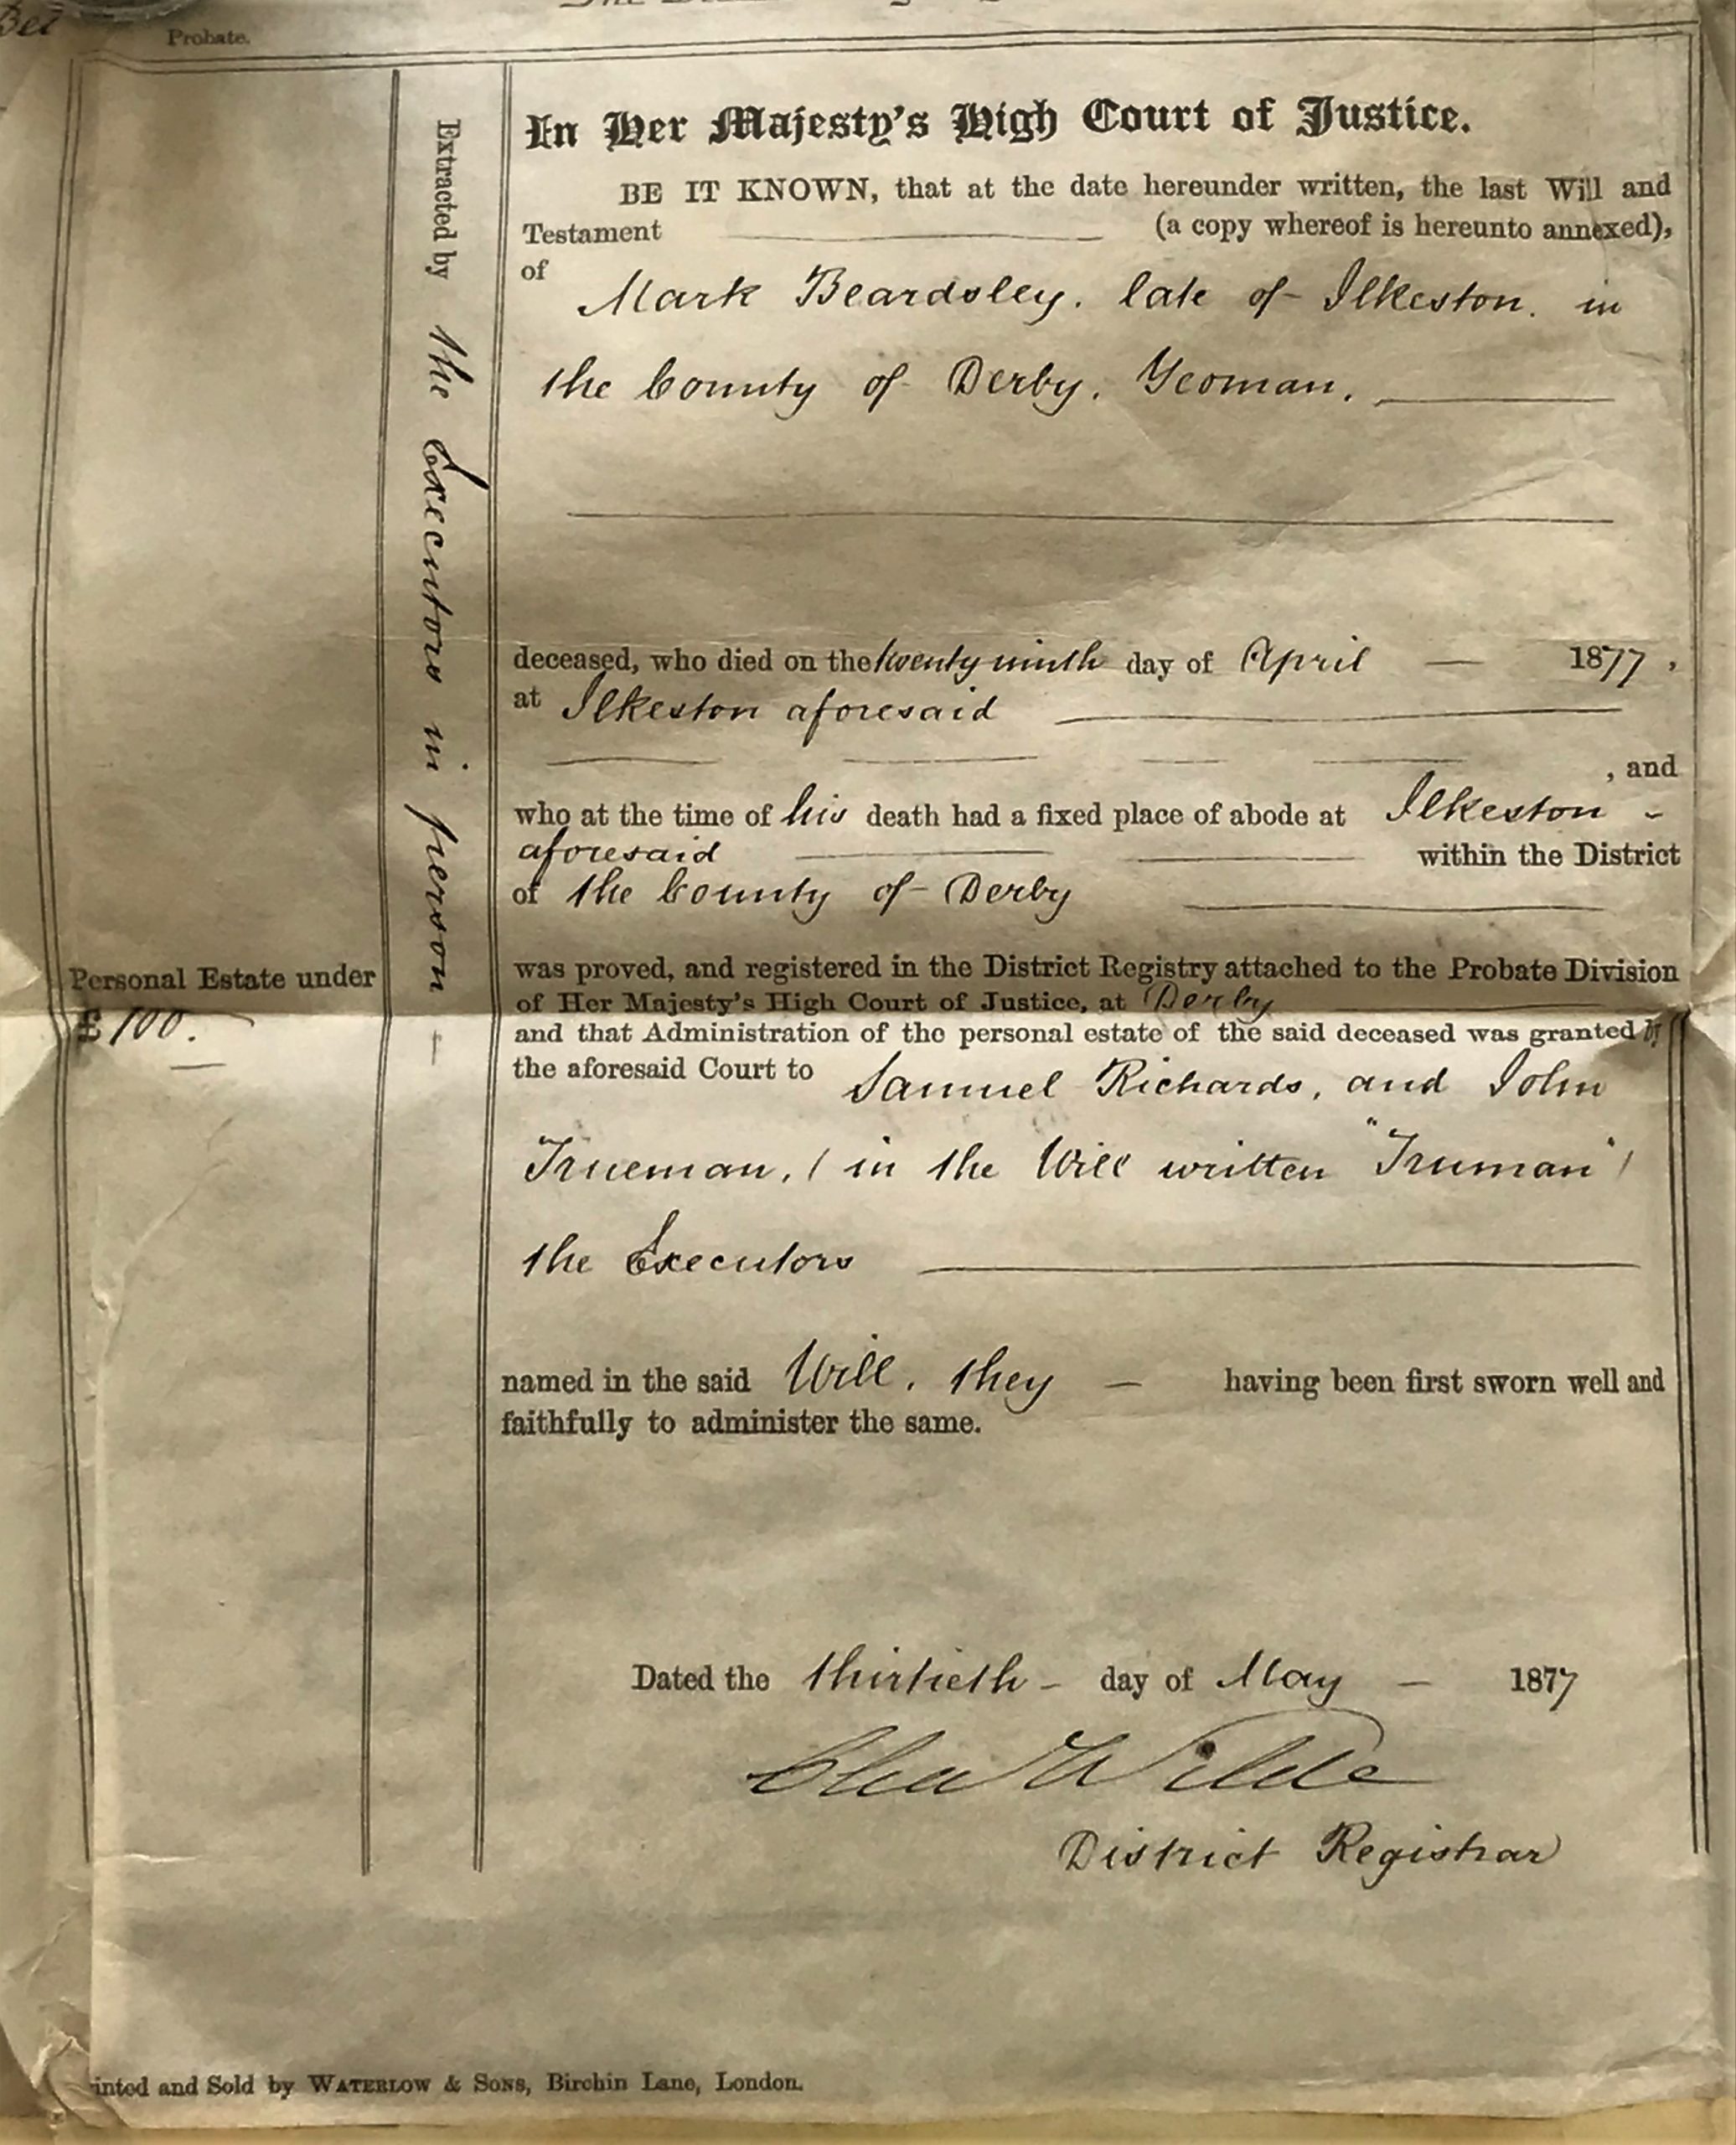 Probate.
In Her Majesty's High Court of Justice.
BE IT KNOWN, that at the date hereunder written, the last Will and
Testament (a copy whereof is hereunto annexed),
of
Mark Beardsley. late of Ilkeston. in
the County of Derby. Yeoman.
deceased, who died on the twenty ninth day of April — 1877,
at Ilkeston aforesaid
, and
who at the time of his death had a fixed place of abode at Ilkeston -
aforesaid within the District
of the County of Derby
was proved, and registered in the District Registry attached to the Probate Division
of Her Majesty's High Court of Justice, at Derby
and that Administration of the personal estate of the said deceased was granted by
the aforesaid Court to Samuel Richards, and John
Trueman, (in the Will written "Truman")
the Executors
named in the said Will. they — having been first sworn well and
faithfully to administer the same.
Dated the thirtieth - day of May — 1877
Wilde
District Registrar
Extracted by the Executors in person —
Personal Estate under
£100.
inted and Sold by WATERLOW & SONS, Birchin Lane, London.